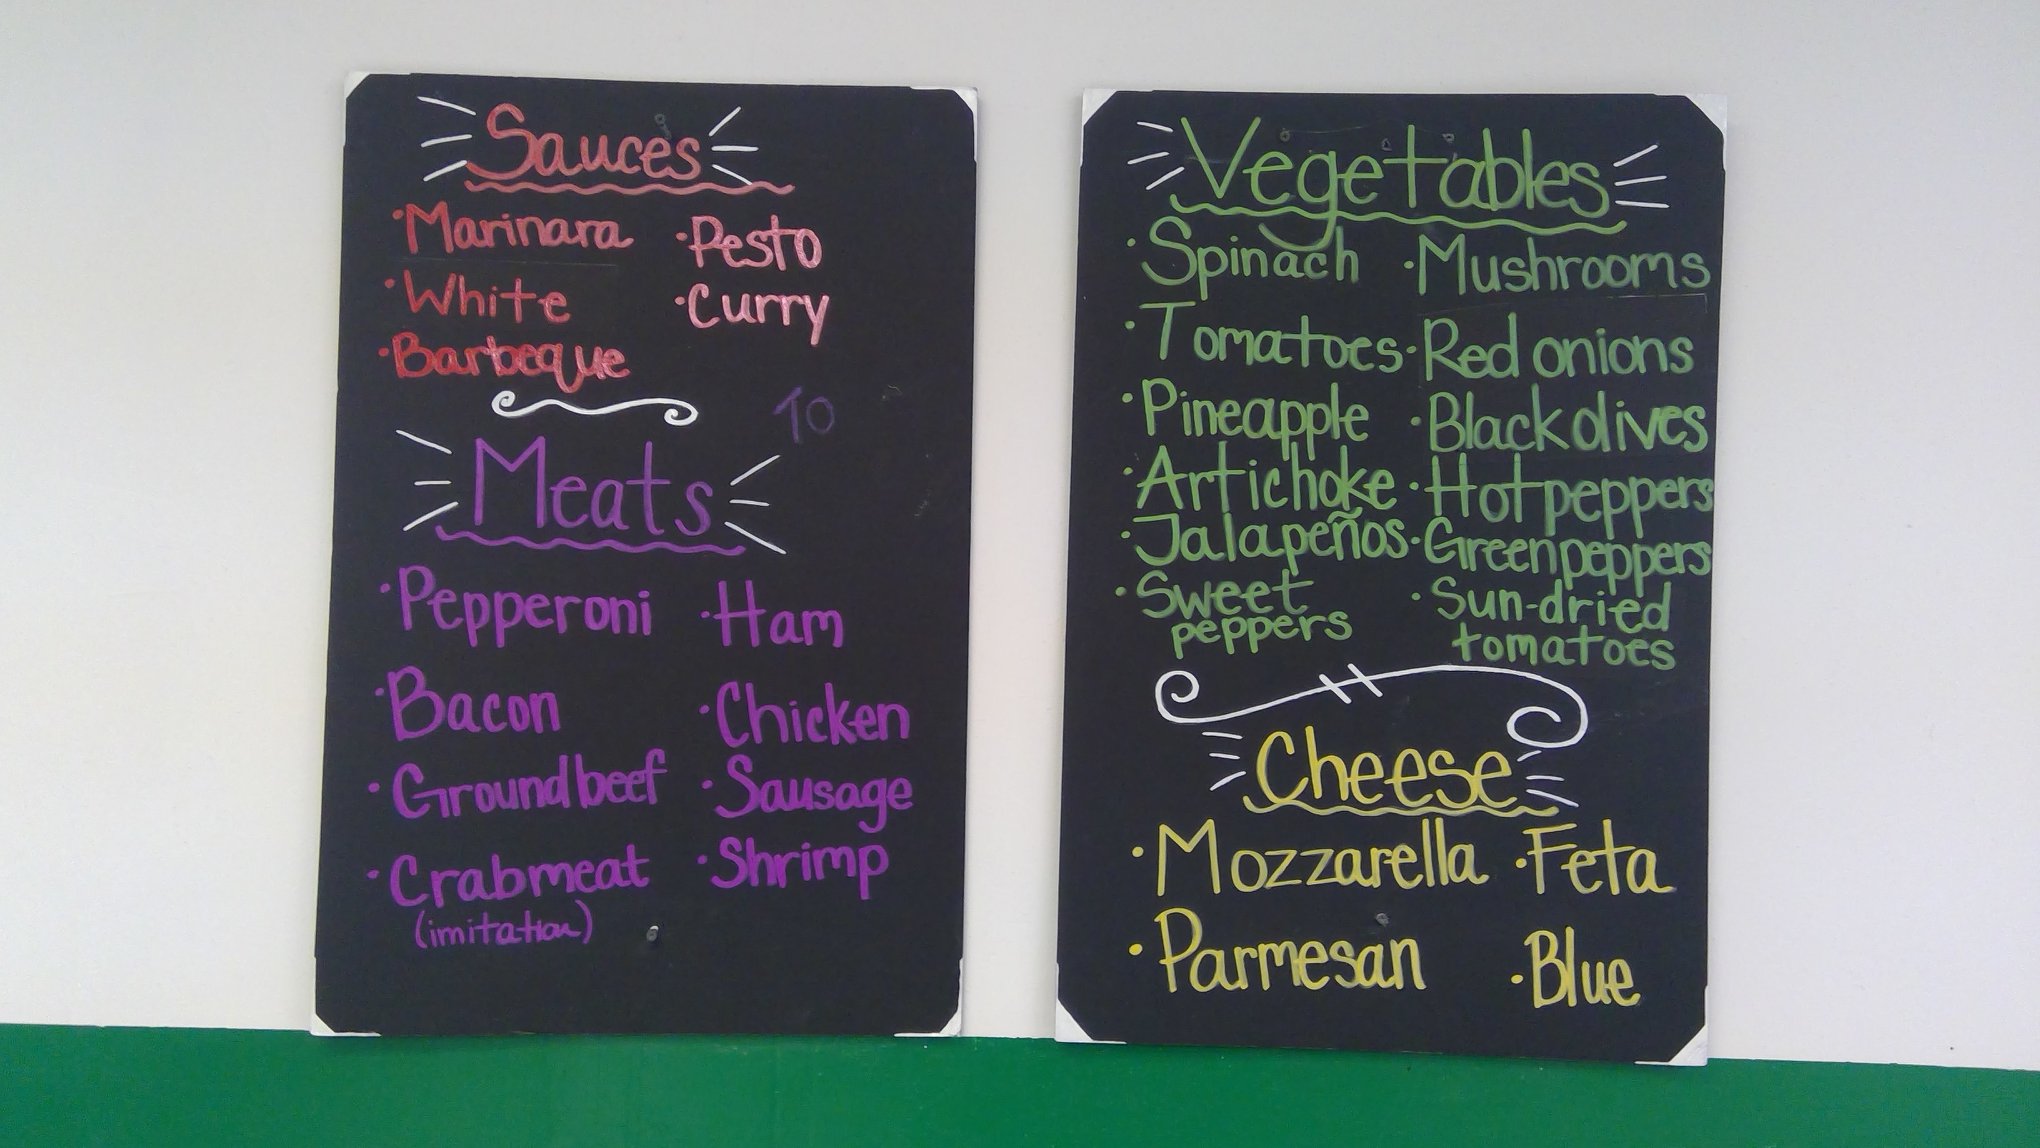 Sauces
·Marinara ·Pesto
·White ·Curry
·Barbeque
10
Meats
·Pepperoni ·Ham
·Bacon ·Chicken
·Groundbeef ·Sausage
·Crabmeat ·Shrimp
(imitation)
Vegetables
·Spinach ·Mushrooms
·Tomatoes ·Red onions
·Pineapple ·Black olives
·Artichoke ·Hot peppers
·Jalapeños ·Green peppers
·Sweet ·Sun-dried
peppers tomatoes
Cheese
·Mozzarella ·Feta
·Parmesan ·Blue